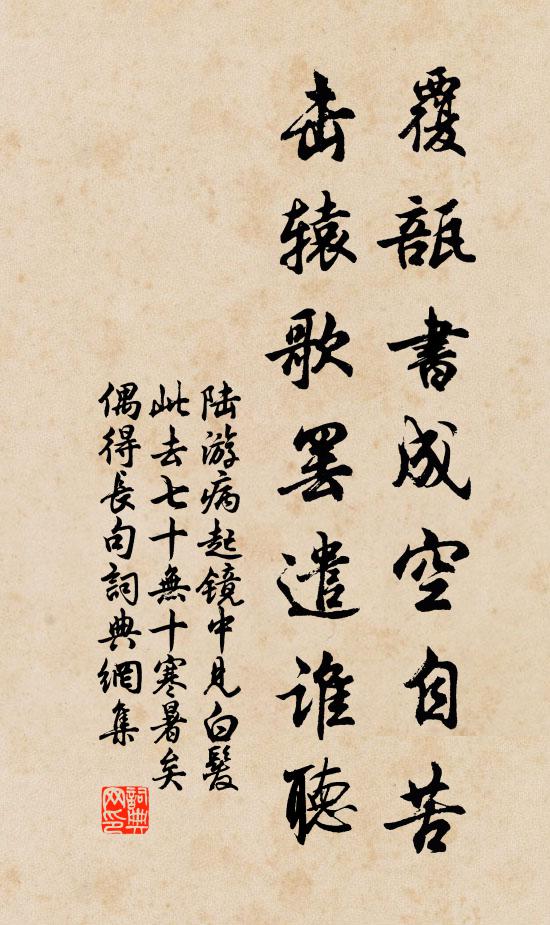 覆瓿書成空自苦
击辕歌罢遣谁聽
陆游病起镜中見白髮
此去七十無十寒暑矣
偶得長句詞典網集
詞典
网印